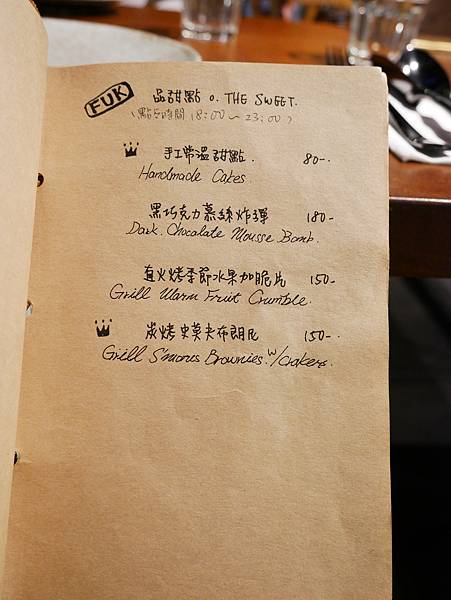 FUK
品甜點 o. THE SWEET.
(點餐時間 18:00~23:00)
手工常溫甜點. 80-.
Handmade Cakes.
黑巧克力慕絲炸彈 180-
Dark Chocolate Mousse Bomb.
直火烤季節水果加脆片 150-
Grill Warm Fruit Crumble.
炭烤史莫夫布朗尼 150-.
Grill S'mores Brownies. w/crakers.